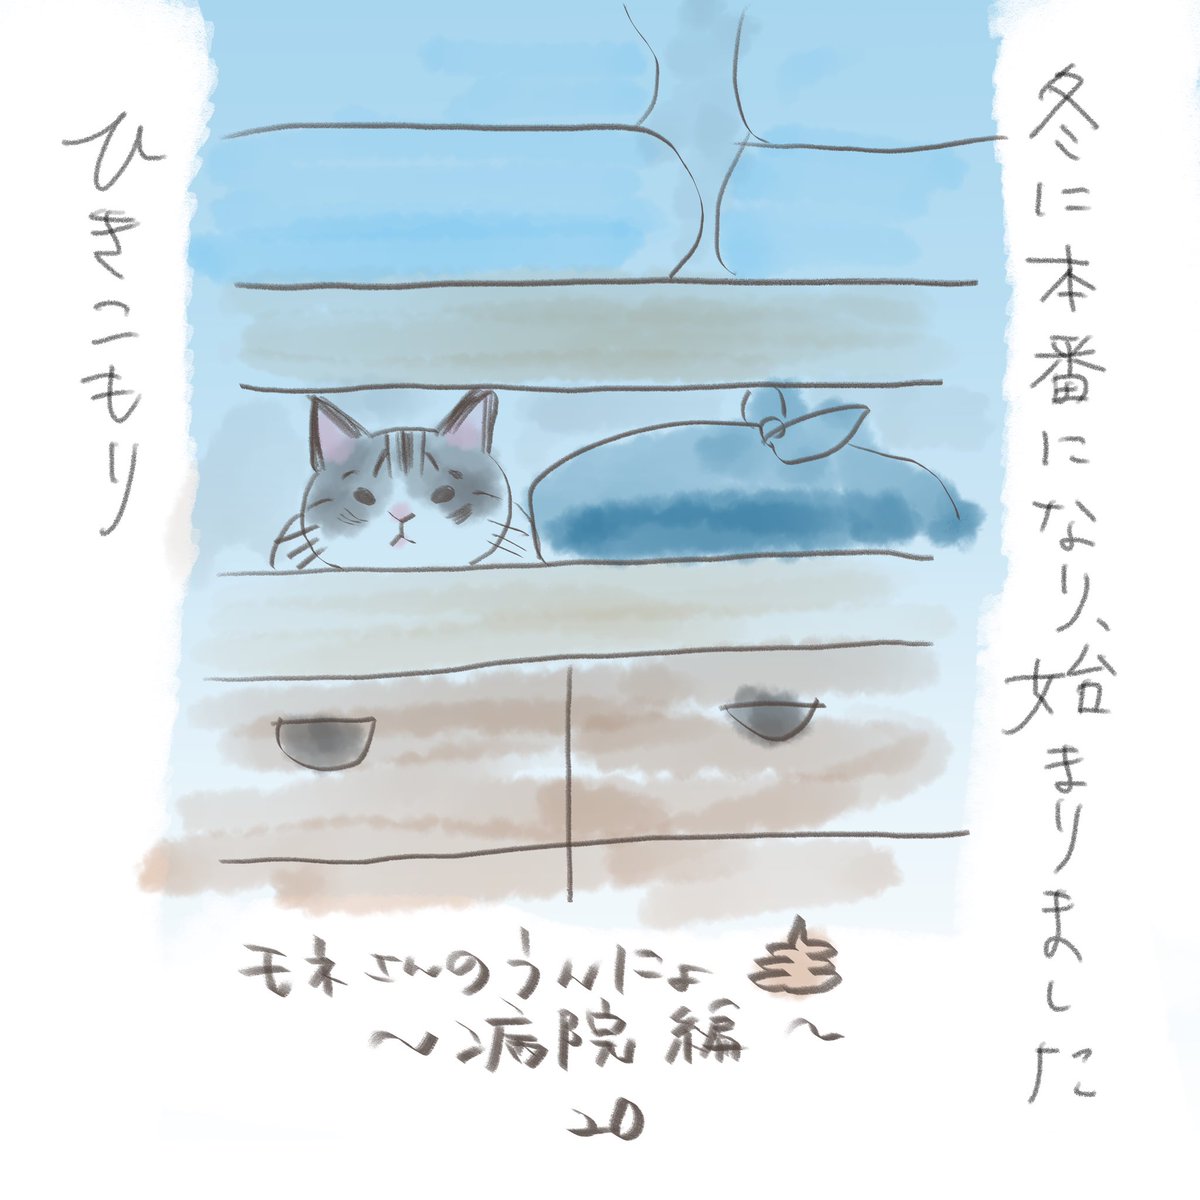 冬に本番になり、始まりました
ひきこもり
モネさんのうんにょ
～病院編～
20